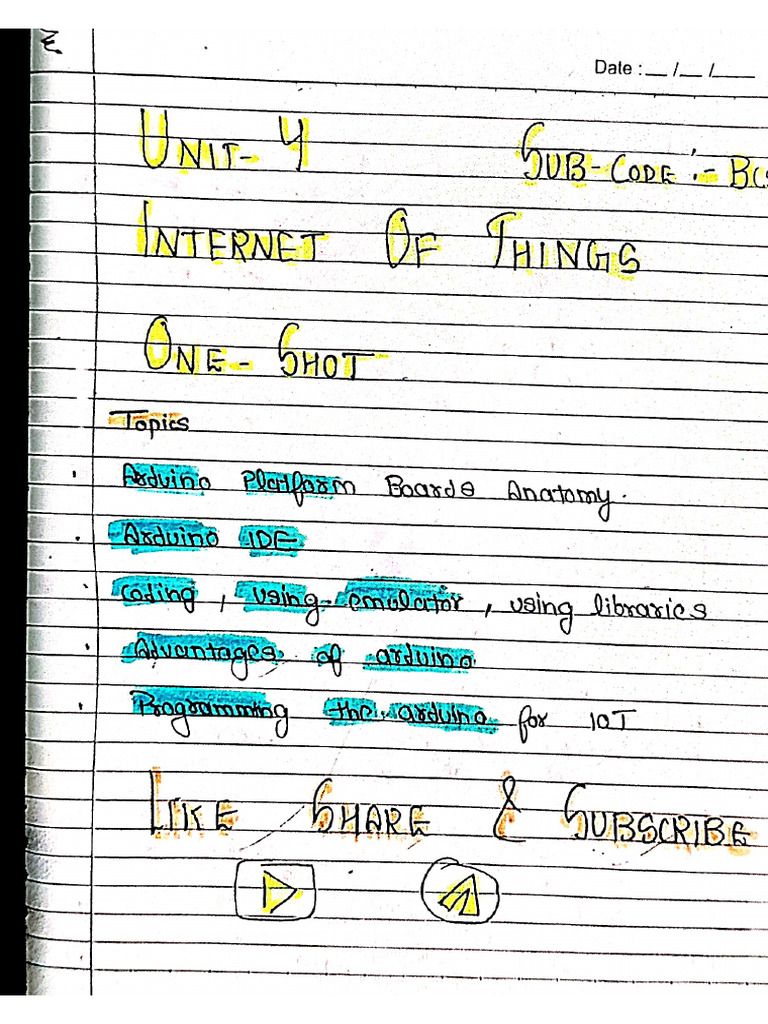 Date : __ /__ /____
UNIT- 4
SUB-CODE :-
INTERNET OF THINGS
ONE- SHOT
Topics
Arduino Platform Boards Anatomy.
Arduino IDE
Coding, using emulator, using libraries
Advantages of arduino
Programming the arduino for IOT
LIKE SHARE & SUBSCRIBE